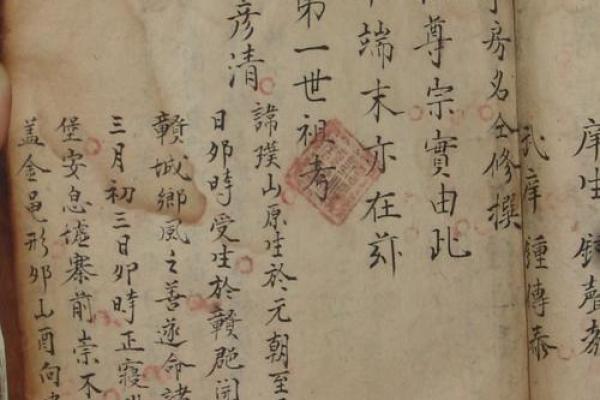 庠生鍾聲
武庠鍾傳泰
房名仝修撰
尊宗實由此
端末亦在茲
第一世祖考
彥清
諱璞山原生於元朝至
日卯時受生於贛郡開
贛城鄉風之善遂命諸
三月初三日卯時正寢
堡安息墟寨前崇不
盖金黽形卯山酉向